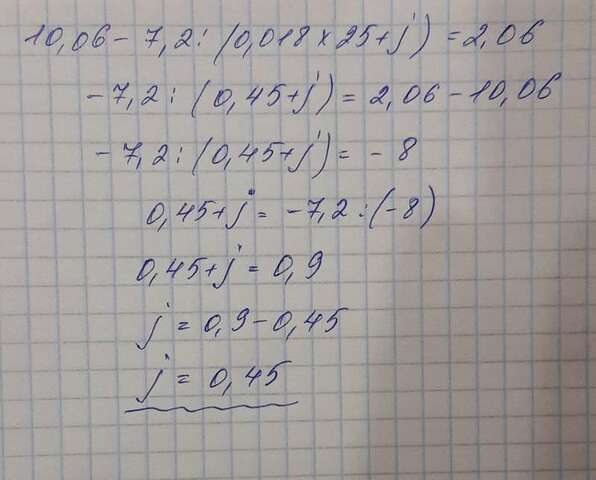 10,06 - 7,2 : (0,018 × 25 + j) = 2,06
-7,2 : (0,45 + j) = 2,06 - 10,06
-7,2 : (0,45 + j) = -8
0,45 + j = -7,2 : (-8)
0,45 + j = 0,9
j = 0,9 - 0,45
j = 0,45